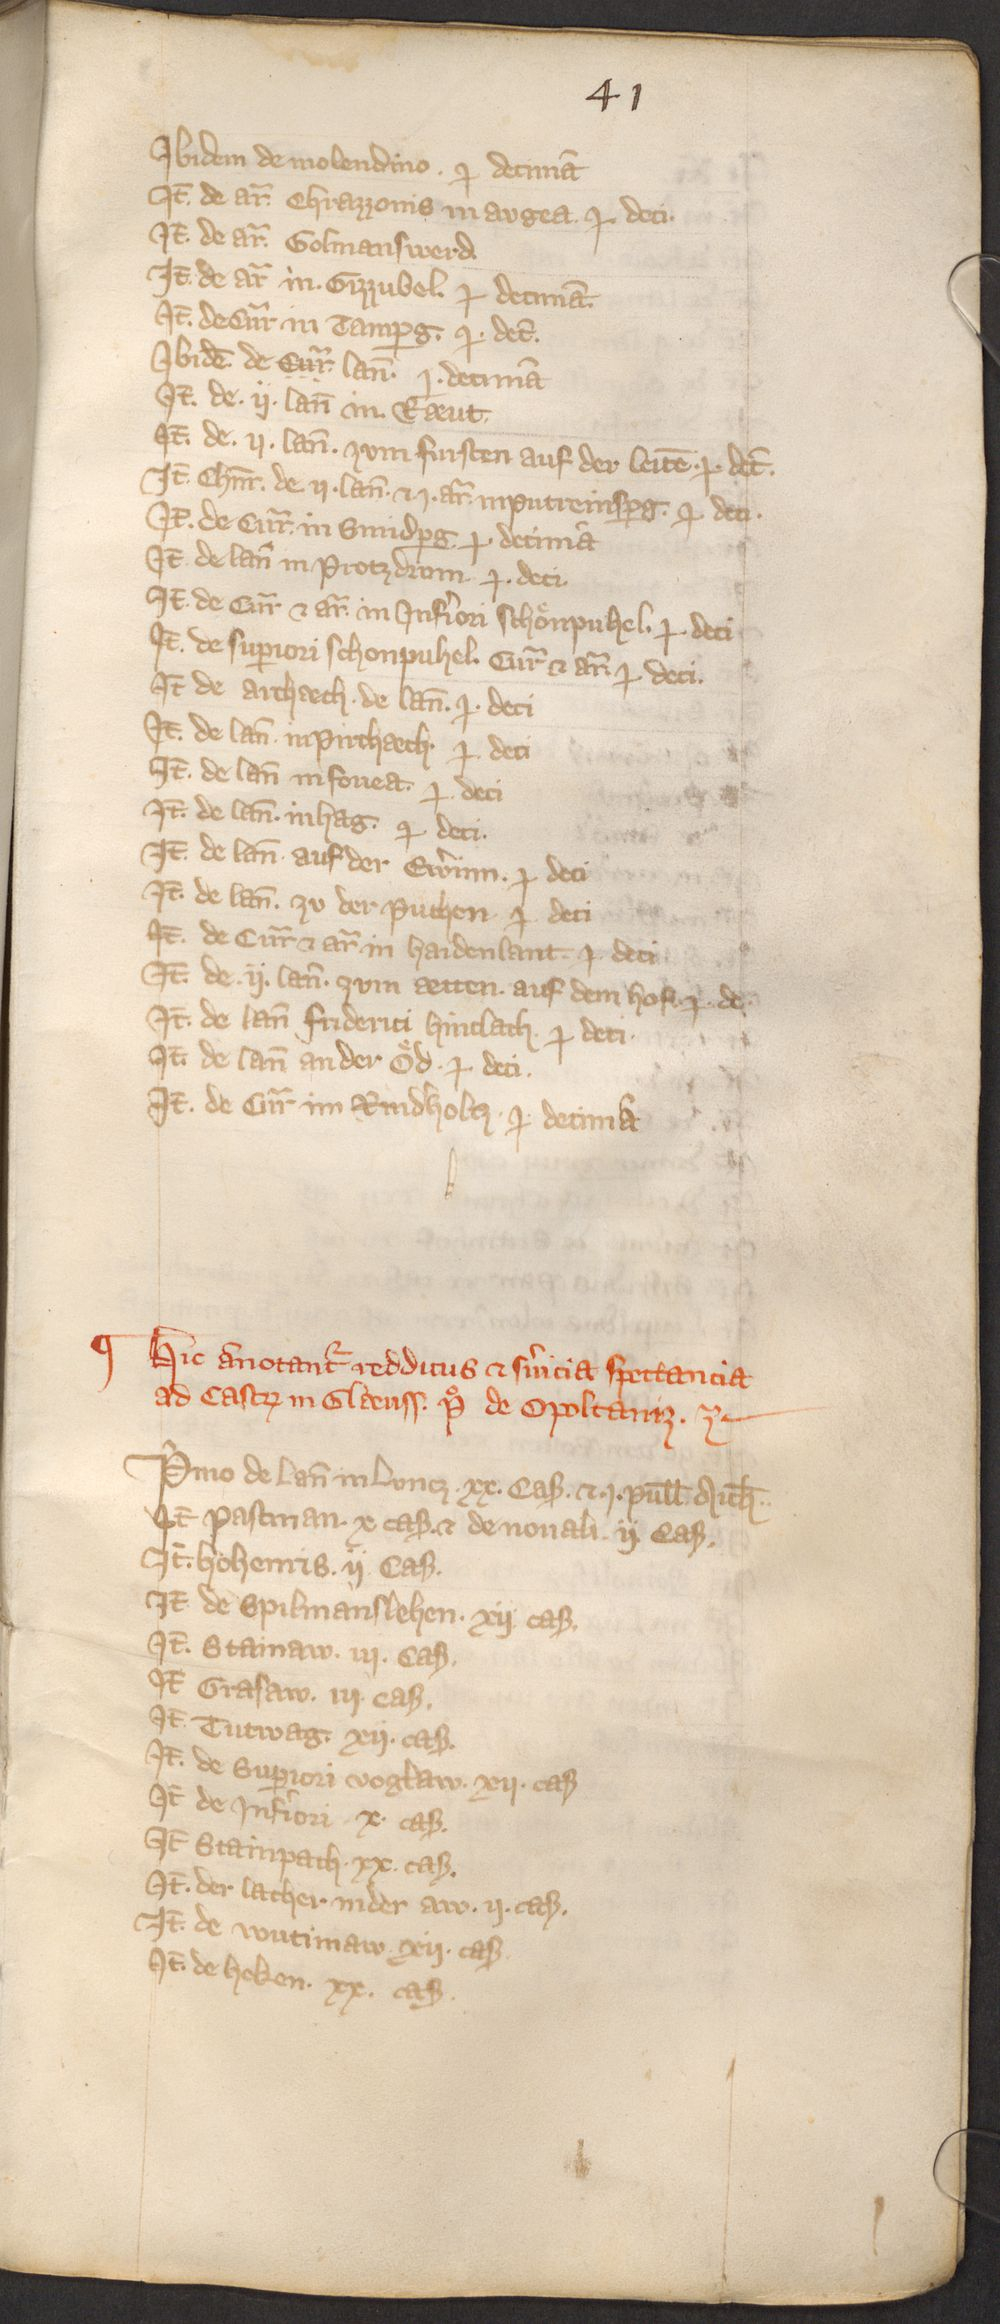 41
Ibidem de molendino. ꝑ decimã
Jt̄. de ar̄. Chrazzonis in augea. ꝑ deci.
Jt̄. de ar̄. Golmanswerd.
Jt̄. de ar̄ in. Gizzubel. ꝑ decimā.
Jt̄. de Cur̄ in Tamꝑg. ꝑ. dec̄.
Ibidē. de Cur̄. lan̄. ꝑ. decimā
Jt̄. de. ij. lan̄ in. Raeut.
Jt̄. de. ij. lan̄. zum fursten auf der leitē. ꝑ. dec̄.
Jt̄. Chn̄r. de ij. lan̄. & j. ar̄. in putreinsꝑg. ꝑ deci.
Jt̄. de Cur̄. in Smidꝑg. ꝑ. decimā
Jt̄. de lan̄ in Protzdrum. ꝑ. deci.
Jt̄. de Cur̄ & ar̄. in Inferiori schönpuhel. ꝑ. deci
Jt̄. de superiori schonpuhel. Cur̄ & ar̄. ꝑ deci.
Jt̄ de archaech. de lan̄. ꝑ. deci
Jt̄. de lan̄. in pirchaech. ꝑ deci
Jt̄. de lan̄ in fouea. ꝑ deci
Jt̄. de lan̄. in hag. ꝑ deci.
Jt̄. de lan̄. auf der Ewrinn. ꝑ deci
Jt̄. de lan̄. zv der puchen. ꝑ deci
Jt̄. de Cur̄ & ar̄ in haidenlant. ꝑ. deci
Jt̄. de. ij. lan̄. zum aetten. auf dem hof. ꝑ. de.
Jt̄. de lan̄ friderici hinclach. ꝑ deci.
Jt̄. de lan̄ an der Öd. ꝑ. deci.
Jt̄. de Cur̄ im Rinderholtz. ꝑ decimā
¶ Hic annotant᷑ redditus & s̄uicia spectancia
ad Castrꝫ in Glaeuss. pͦ de Opoltaniz.
Primo de lan̄ in Luncz. xx. Cas. & j. pull
Jt̄ pastman. x cas. & de nouali. ij. Cas.
Jt̄. hohenris. ij. Cas.
Jt̄ de Spilmanslehen. xij. cas.
Jt̄. Stainaw. iij. Cas.
Jt̄ Grasaw. iij. cas.
Jt̄. Tutwag. xij. cas.
Jt̄. de Superiori voglaw. xij. cas
Jt̄ de Inferiori. x. cas.
Jt̄ Stainpach. xx. cas.
Jt̄. der lacher in der aw. ij. cas.
Jt̄. de wutimaw. xij. cas
Jt̄. de heken. xx. cas.